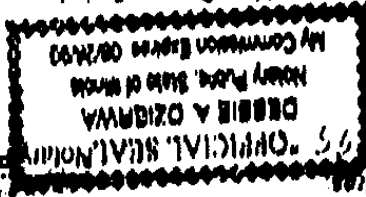 "OFFICIAL SEAL"
DEBBIE A DZIGAWA
Notary Public, State of Illinois
My Commission Expires